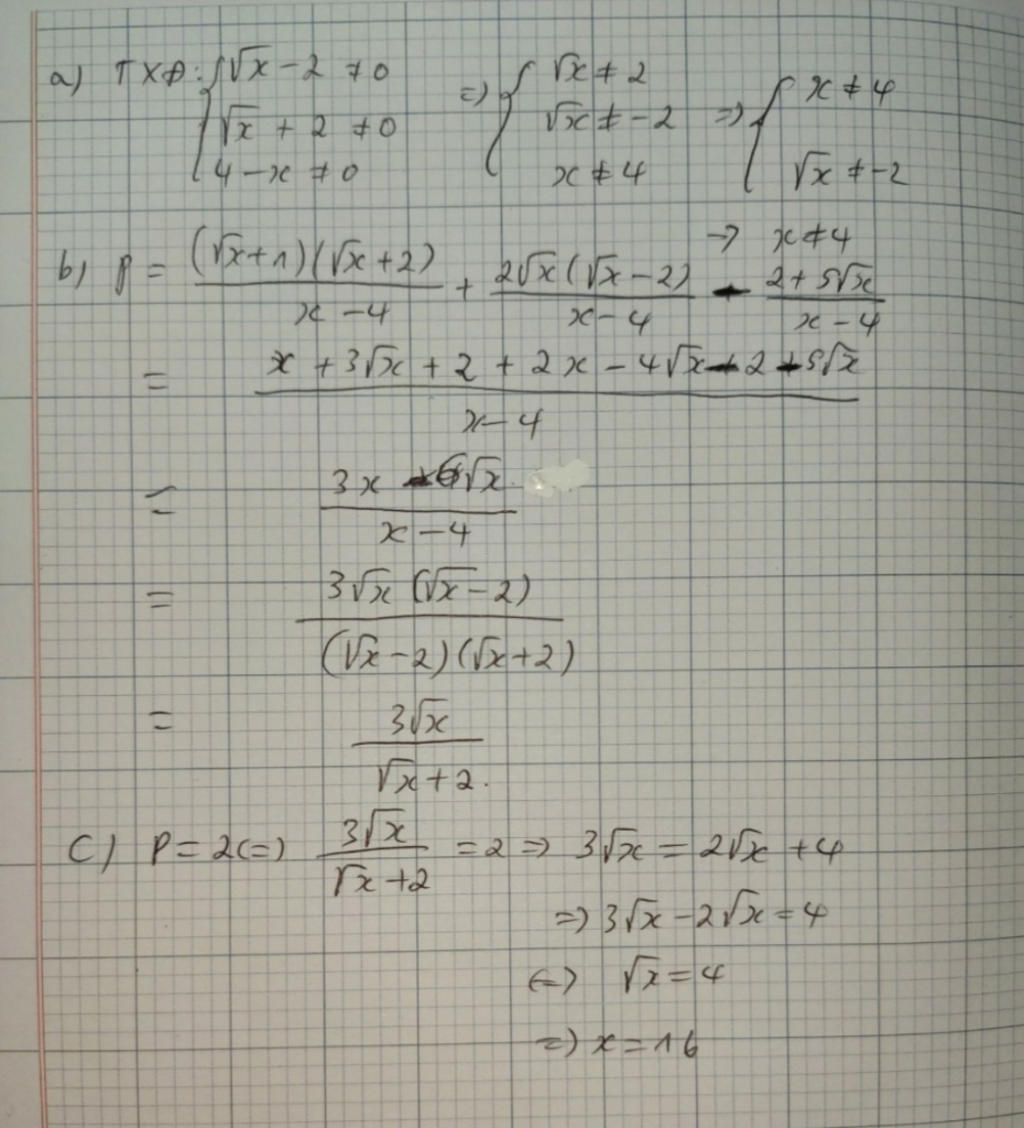 a) TXĐ: { √x - 2 ≠ 0 => { √x ≠ 2 => { x ≠ 4
√x + 2 ≠ 0 √x ≠ -2
4 - x ≠ 0 x ≠ 4 √x ≠ -2
→ x ≠ 4
b) P = (√x+1)(√x+2) / x - 4 + 2√x(√x-2) / x - 4 - 2+5√x / x - 4
= x + 3√x + 2 + 2x - 4√x - 2 - 5√x / x - 4
= 3x - 6√x / x - 4
= 3√x (√x - 2) / (√x - 2)(√x + 2)
= 3√x / √x + 2.
C) P = 2 <=> 3√x / √x + 2 = 2 => 3√x = 2√x + 4
=> 3√x - 2√x = 4
<=> √x = 4
=> x = 16